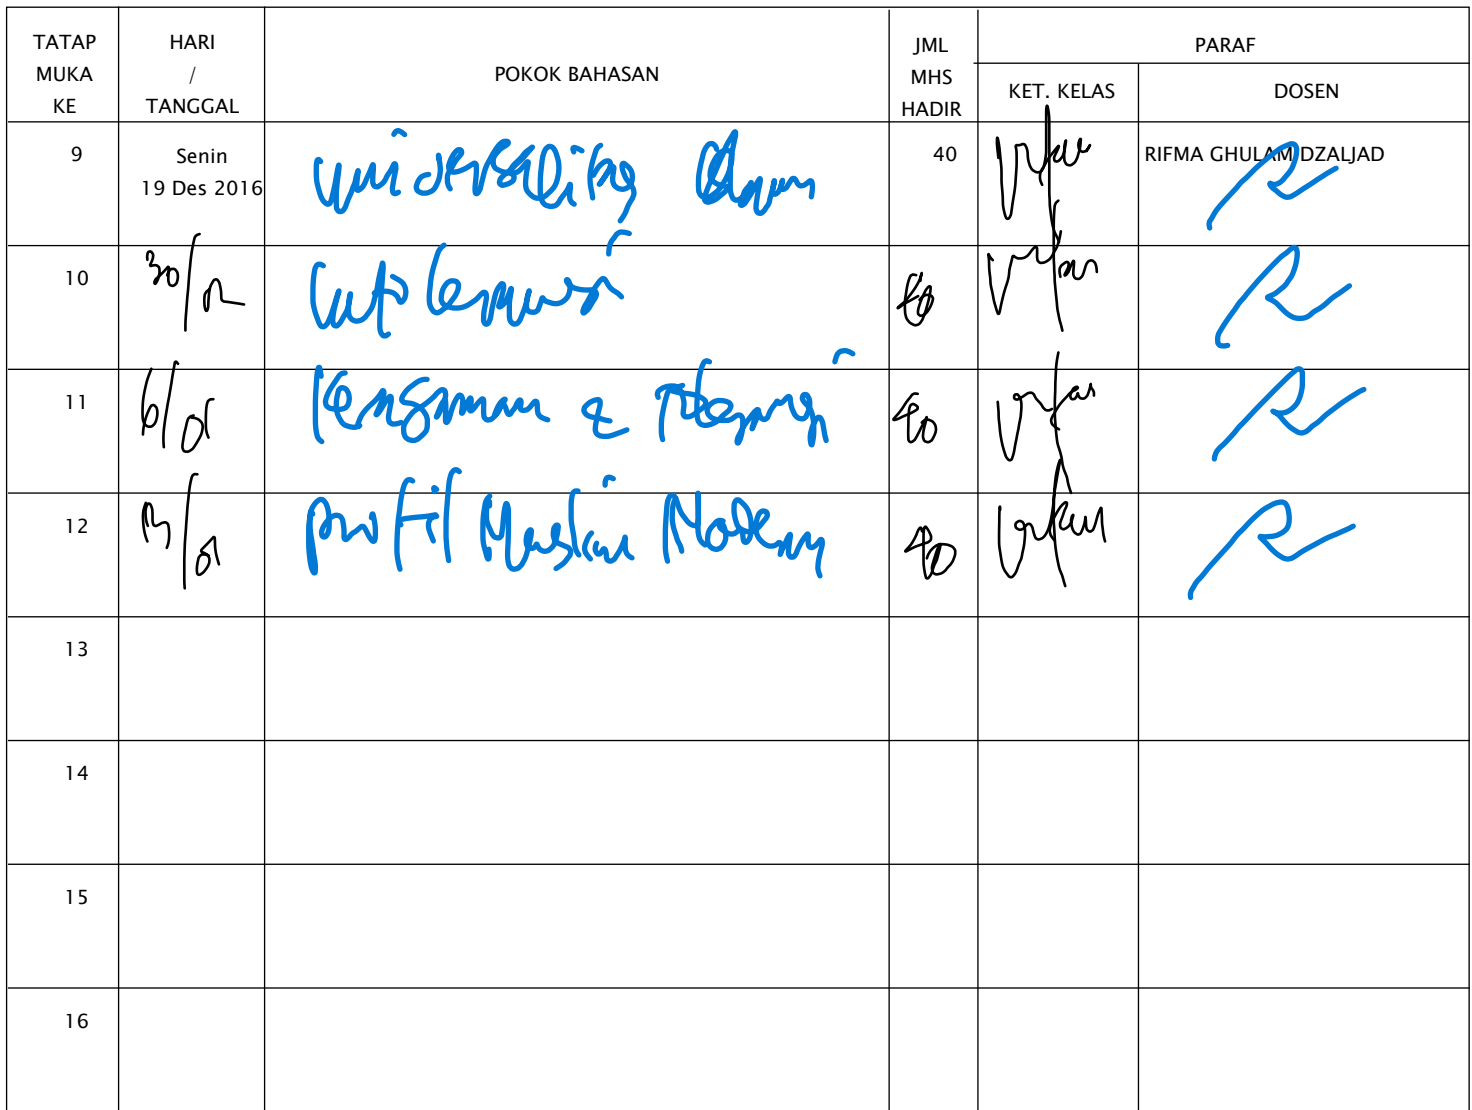 TATAP MUKA KE
HARI / TANGGAL
POKOK BAHASAN
JML MHS HADIR
PARAF
KET. KELAS
DOSEN
9
Senin
19 Des 2016
universalitas
40
RIFMA GHULAM DZALJAD
10
30/12
40
11
6/01
&
40
12
13/01
profil Muslim Modern
40
13
14
15
16